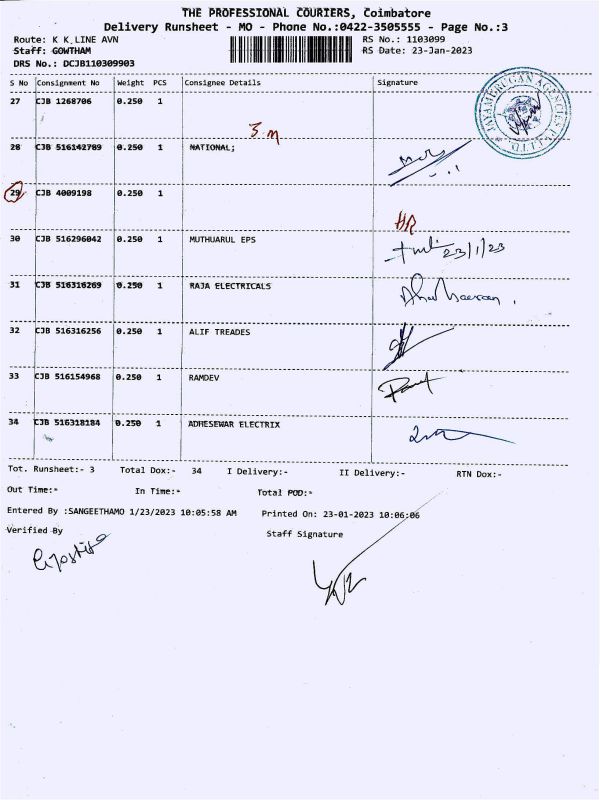 THE PROFESSIONAL COURIERS, Coimbatore
Delivery Runsheet - MO - Phone No.:0422-3505555 - Page No.:3
Route: K K LINE AVN RS No.: 1103099
Staff: GOWTHAM RS Date: 23-Jan-2023
DRS No.: DCJB110309903
S No Consignment No Weight PCS Consignee Details Signature
27 CJB 1268706 0.250 1
S.M
28 CJB 516142789 0.250 1 NATIONAL;
29 CJB 4009198 0.250 1
HR
30 CJB 516296042 0.250 1 MUTHUARUL EPS
23/1/23
31 CJB 516316269 0.250 1 RAJA ELECTRICALS
32 CJB 516316256 0.250 1 ALIF TREADES
33 CJB 516154968 0.250 1 RAMDEV
34 CJB 516318184 0.250 1 ADHESEWAR ELECTRIX
Tot. Runsheet:- 3 Total Dox:- 34 I Delivery:- II Delivery:- RTN Dox:-
Out Time:- In Time:- Total POD:-
Entered By :SANGEETHAMO 1/23/2023 10:05:58 AM Printed On: 23-01-2023 10:06:06
Verified By Staff Signature